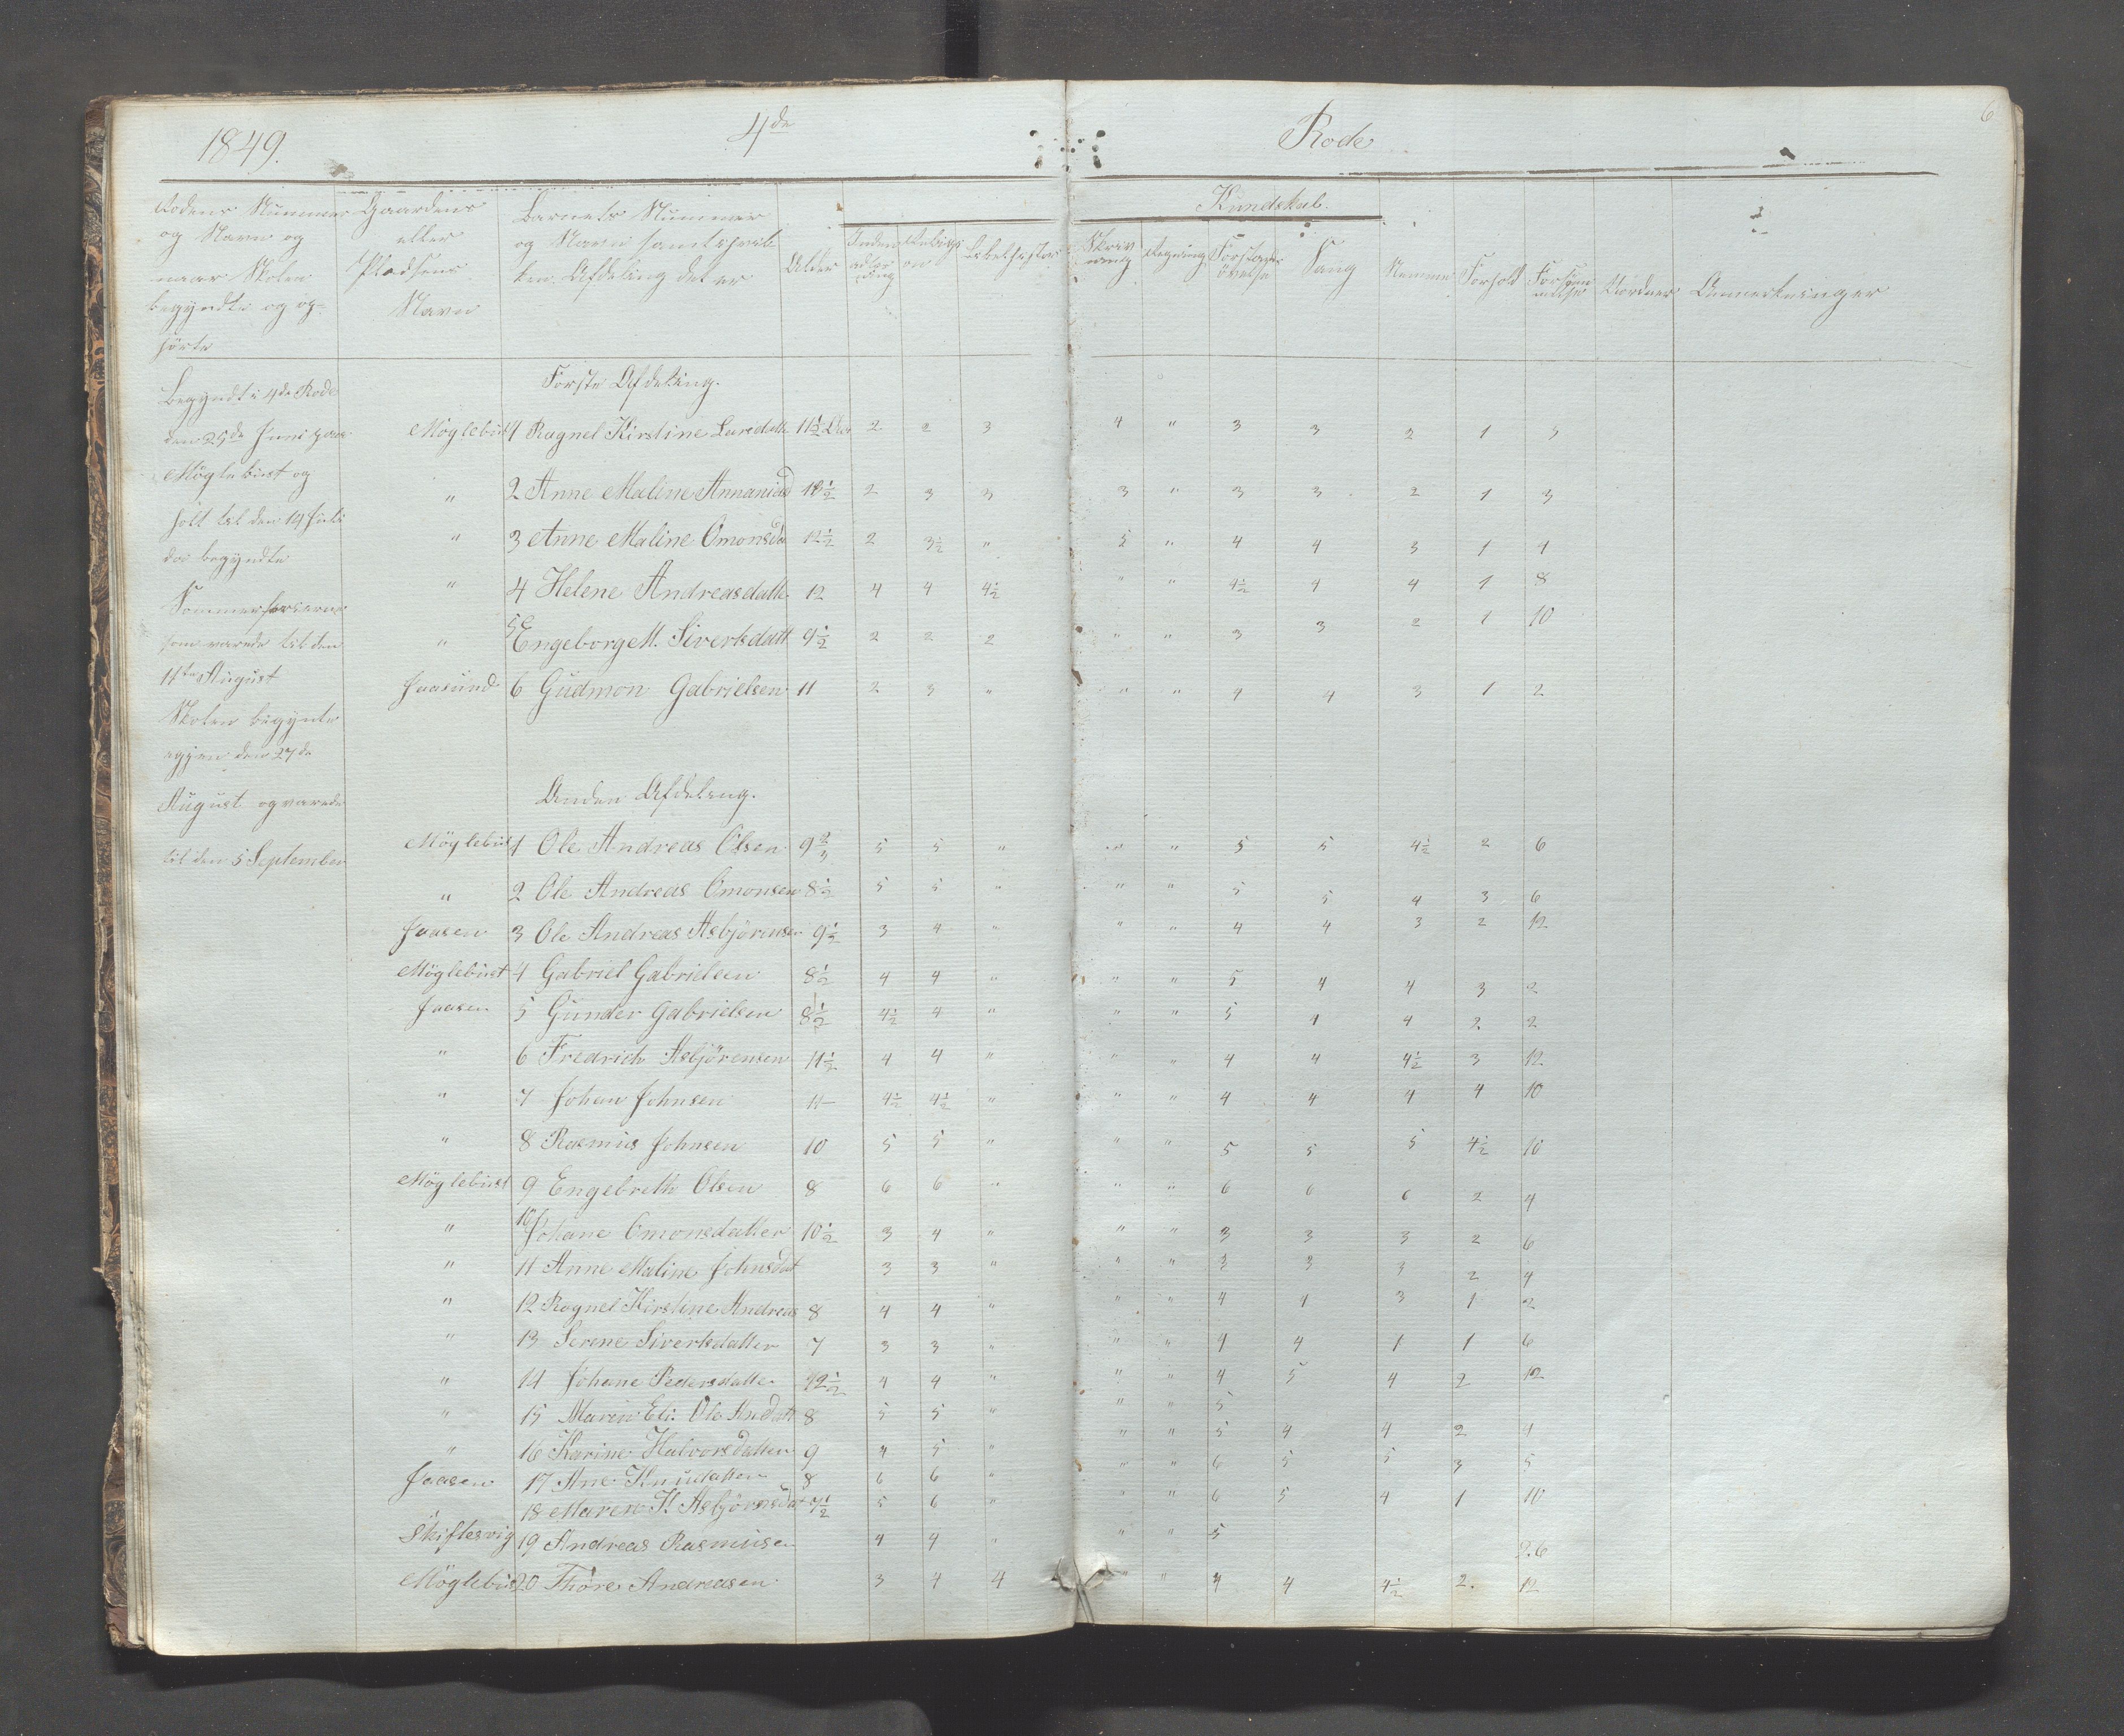 1849. 4de Rode 6
Rodens Nummer og Navn og naar Skolen begyndte og op-hørte
Gaardens eller Pladsens Navn
Barnets Nummer og Navn samt hvilken Afdeling det er
Alder
Kundskab.
Skrivning Regning Sang Nemme Forhold Forsømmelse Anmærkninger
Begyndt i 4de Rode
den 25de Juni paa
Møglebust og
holt til den 14 Juli
da begyndte
Sommerferierne
som varede til den
11te August
Skolen begynte
igjen den 27de
August og varede
til den 5 September
Første Afdeling.
Møglebust 1 Ragnel Kirstine Larsdatte 11½ Aar 2 2 3 4 " 3 3 2 1 3
" 2 Anne Maline Annaniasd 10½ 2 3 3 3 " 3 3 2 1 3
" 3 Anne Maline Omonsda 12½ 2 3½ " 5 " 4 4 3 1 4
" 4 Helene Andreasdatte 12 4 4 4½ " " 4½ 4 4 1 8
" 5 Engeborg M. Sivertsdatt 9½ 2 2 2 " " 3 3 2 1 10
Jaasund 6 Gudmon Gabrielsen 11 2 3 " " " 4 4 3 1 2
Anden Afdeling.
Møglebust 1 Ole Andreas Olsen 9⅔ 5 5 " " " 5 5 4½ 2 6
" 2 Ole Andreas Omonsen 8½ 5 5 " " " 5 5 4 3 6
Jaasen 3 Ole Andreas Asbjørensen 9½ 3 4 " " " 4 4 3 2 12
Møglebust 4 Gabriel Gabrielsen 8½ 4 4 " " " 5 4 4 3 2
Jaasen 5 Gunder Gabrielsen 8½ 4½ 4 " " " 5 4 4 2 2
" 6 Fredrich Asbjørensen 11½ 4 4 " " " 4 4 4½ 3 12
" 7 Johan Johnsen 11 4½ 4½ " " " 4 4 4 4 10
" 8 Rasmus Johnsen 10 5 5 " " " 5 5 5 4½ 10
Møglebust 9 Engebreth Olsen 8 6 6 " " " 6 6 6 2 4
" 10 Johane Omonsdatter 10½ 3 4 " " " 3 3 3 2 6
" 11 Anne Maline Johnsdat 3 3 " " " 3 3 3 2 4
" 12 Ragnel Kirstine Andreas 8 4 4 " " " 4 4 3 1 2
" 13 Serene Sivertsdatter 7 3 3 " " " 4 4 1 1 6
" 14 Johane Pedersdatte 12½ 4 4 " " " 4 5 4 2 12
" 15 Maren Eli. Ole Andatt 8 5 5 " " " 5
" 16 Karine Halvorsdatter 9 4 5 " " " 5 4 4 2 4
Jaasen 17 Ane Knudatter 8 6 6 " " " 6 5 5 3 5
18 Maren K. Asbjørnsdat 7½ 5 6 " " " 6 5 4 1 10
Skiftesvig 19 Andreas Rasmusen 4 4 " " " 5 26
Møglebust 20 Thore Andreasen 3 4 4 " " 4 4 4½ 2. 12